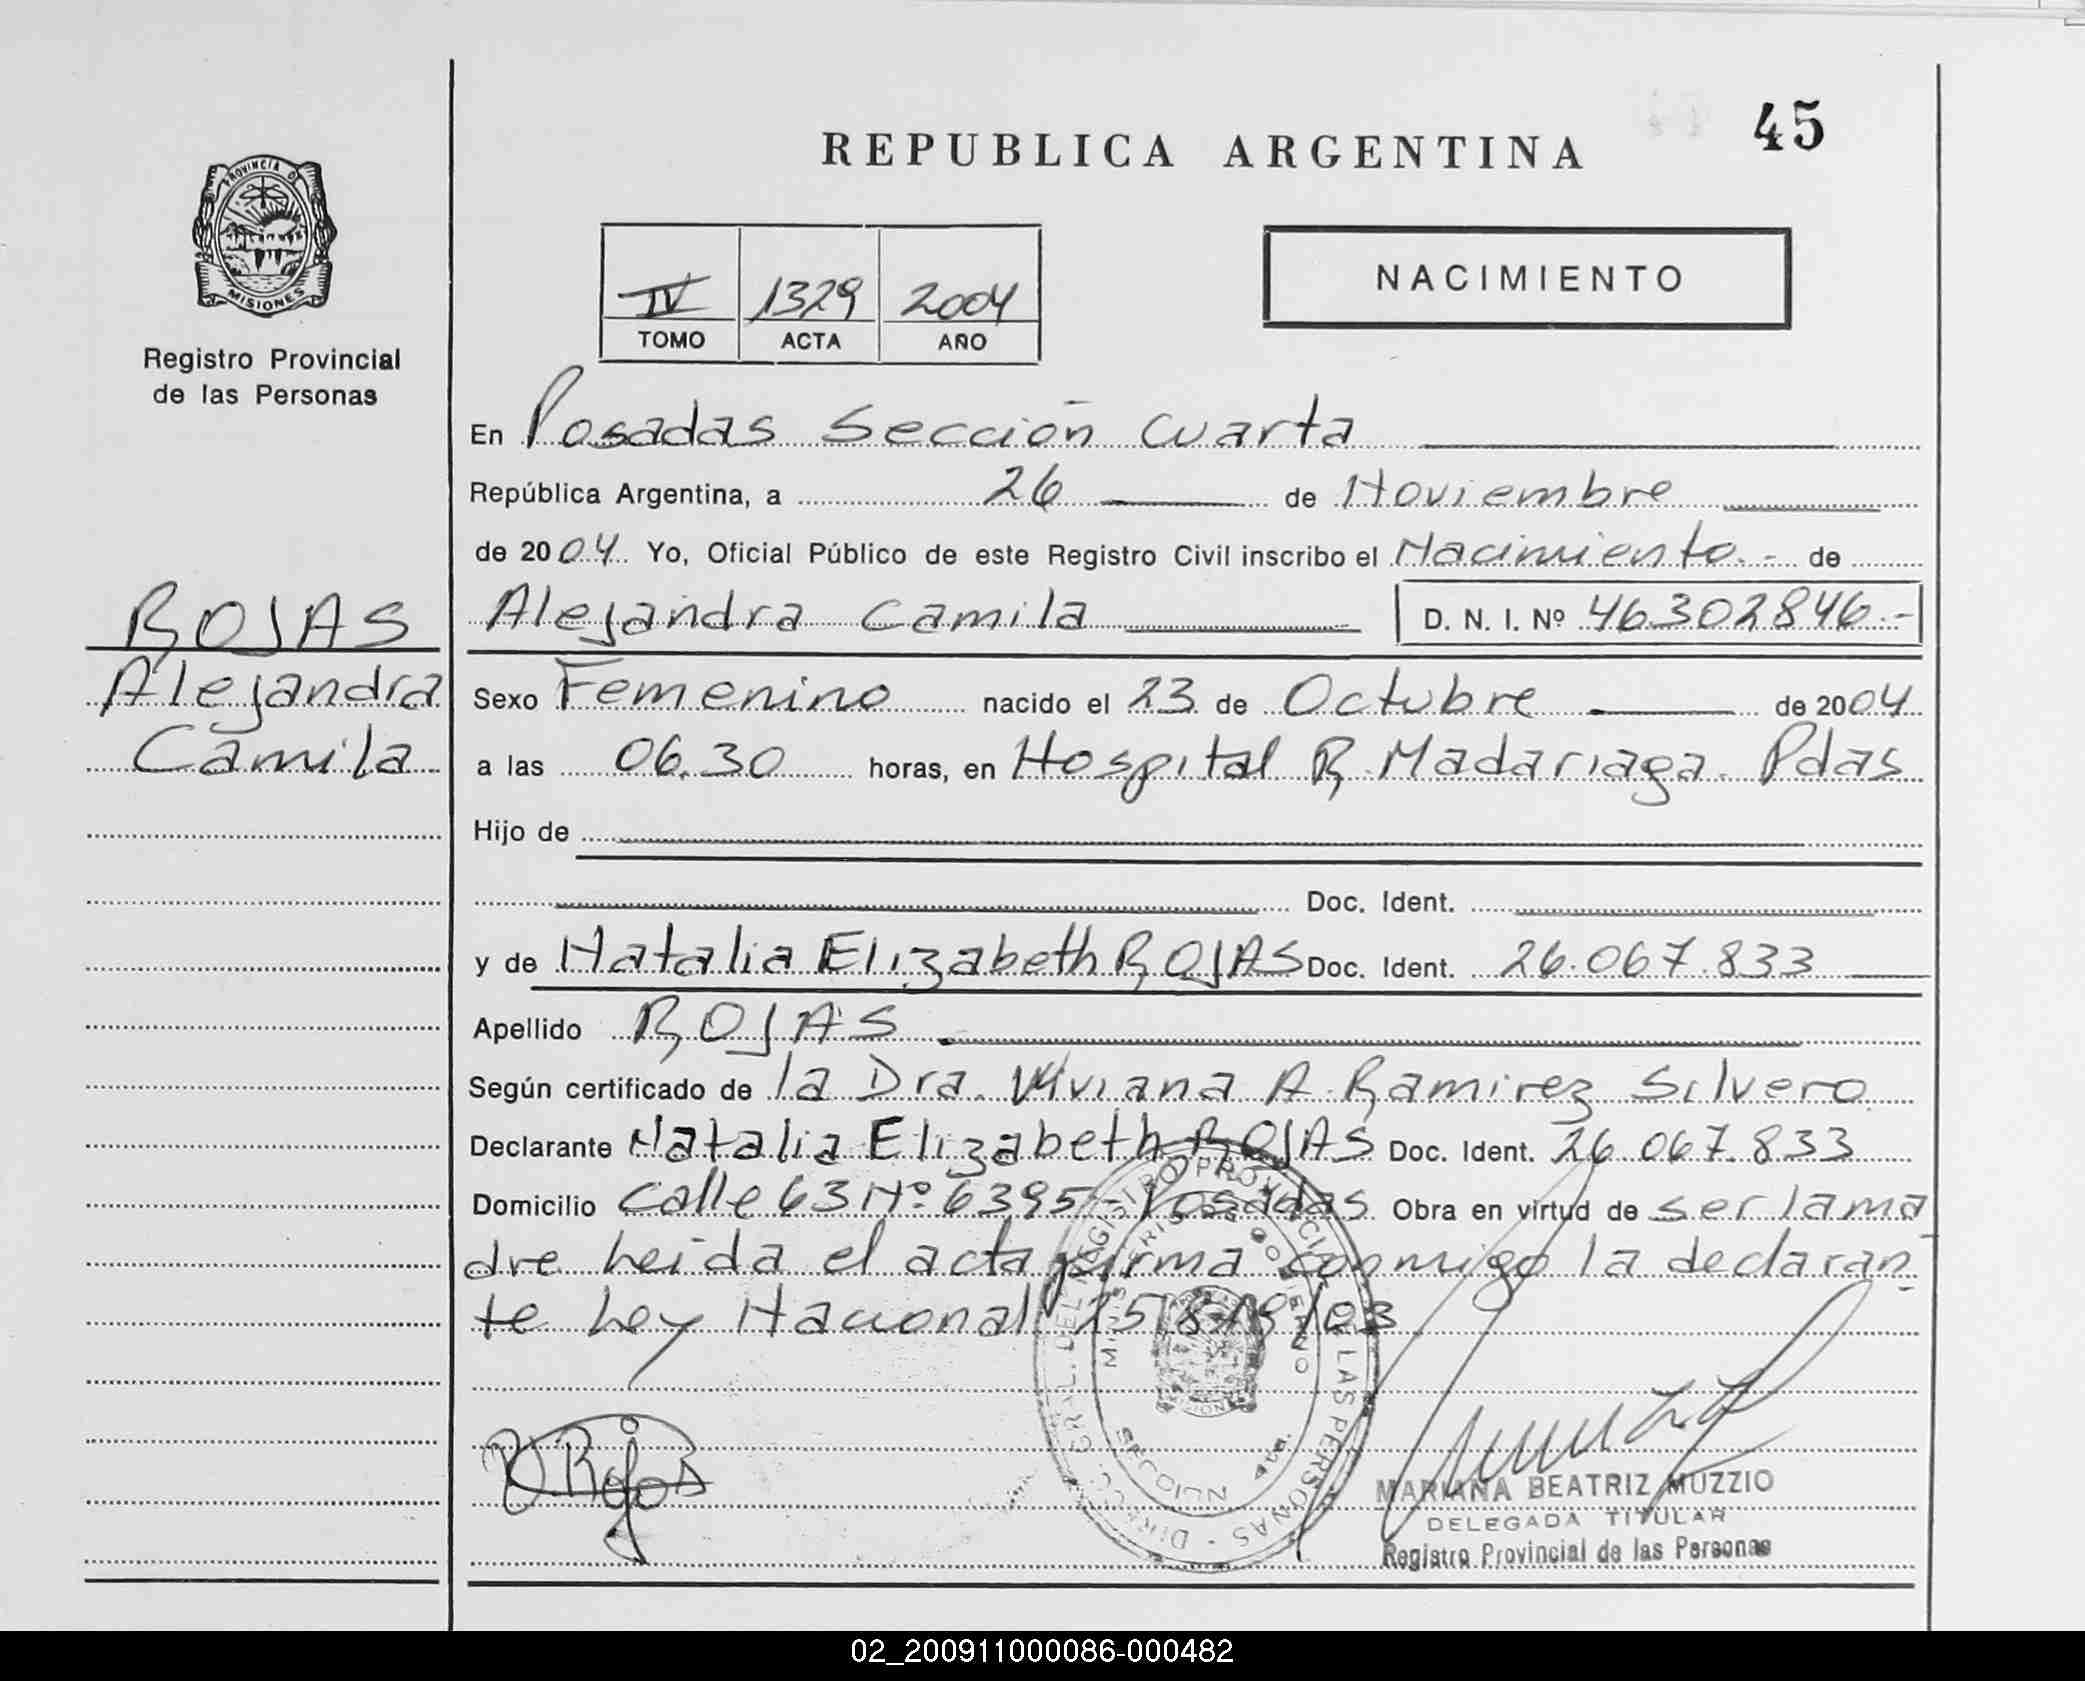 45
REPUBLICA ARGENTINA
PROVINCIA DE
MISIONES
Registro Provincial
de las Personas
IV 1329 2004
TOMO ACTA AÑO
NACIMIENTO
En Posadas Sección Cuarta
República Argentina, a 26 de Noviembre
de 2004. Yo, Oficial Público de este Registro Civil inscribo el Nacimiento.- de
ROJAS
Alejandra
Camila
Alejandra Camila D. N. I. Nº 46302846.-
Sexo Femenino nacido el 23 de Octubre de 2004
a las 06.30 horas, en Hospital R. Madariaga. Pdas
Hijo de
Doc. Ident.
y de Natalia Elizabeth ROJAS Doc. Ident. 26.067.833
Apellido ROJAS
Según certificado de la Dra. Viviana A. Ramirez Silvero
Declarante Natalia Elizabeth ROJAS Doc. Ident. 26.067.833
Domicilio Calle 63 Nº 6395- Posadas Obra en virtud de ser la ma
dre Leida el acta firma conmigo la declaran
te Ley Nacional 25.819/03
Rojas
DIRECC. GRAL. DEL REGISTRO PROVINCIAL DE LAS PERSONAS
MINISTERIO DE GOBIERNO
MARIANA BEATRIZ MUZZIO
DELEGADA TITULAR
Registro Provincial de las Personas
02_200911000086-000482